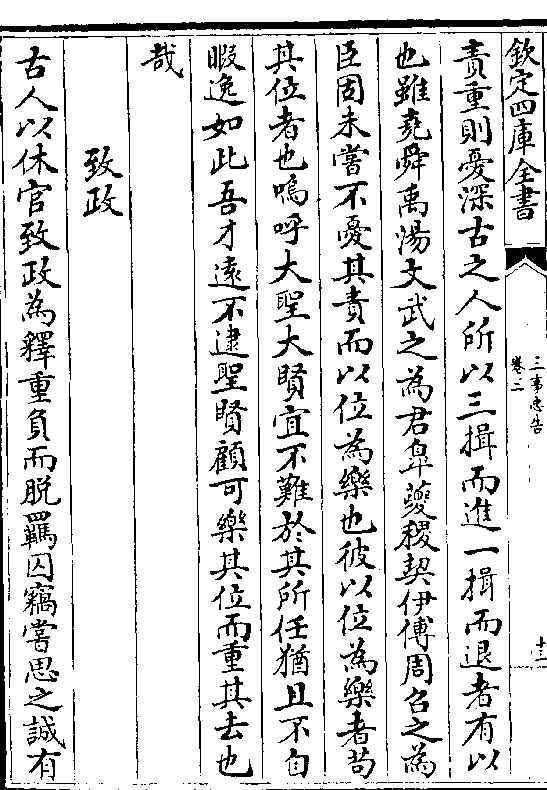 欽定四庫全書
三事忠告
卷二
十三
責重則憂深古之人所以三揖而進一揖而退者有以
也雖堯舜禹湯文武之為君臯夔稷契伊傅周召之為
臣固未嘗不憂其責而以位為樂也彼以位為樂者茍
其位者也嗚呼大聖大賢宜不難於其所任猶且不自
暇逸如此吾才遠不逮聖賢顧可樂其位而重其去也
哉
致政
古人以休官致政為釋重負而脱羈囚竊嘗思之誠有